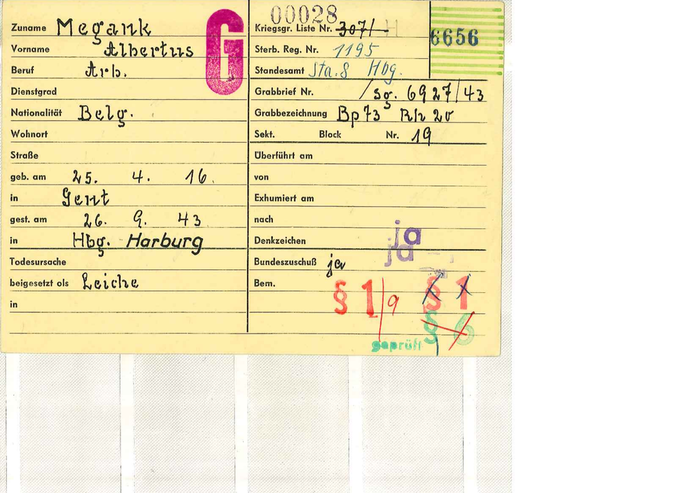 Zuname Megank
Vorname Albertus
Beruf Arb.
Dienstgrad
Nationalität Belg.
Wohnort
Straße
geb. am 25. 4. 16.
in Gent
gest. am 26. 9. 43
in Hbg. Harburg
Todesursache
beigesetzt als Leiche
in
G
00028
Kriegsgr. Liste Nr. 307/- H
6656
Sterb. Reg. Nr. 1195
Standesamt Sta.S Hbg.
Grabbrief Nr. /Sg. 6927/43
Grabbezeichnung Bp73 Rh 20
Sekt. Block Nr. 19
Überführt am
von
Exhumiert am
nach
Denkzeichen ja
ja
Bundeszuschuß ja
Bem.
§ 1/9 § 1
§ 6
geprüft